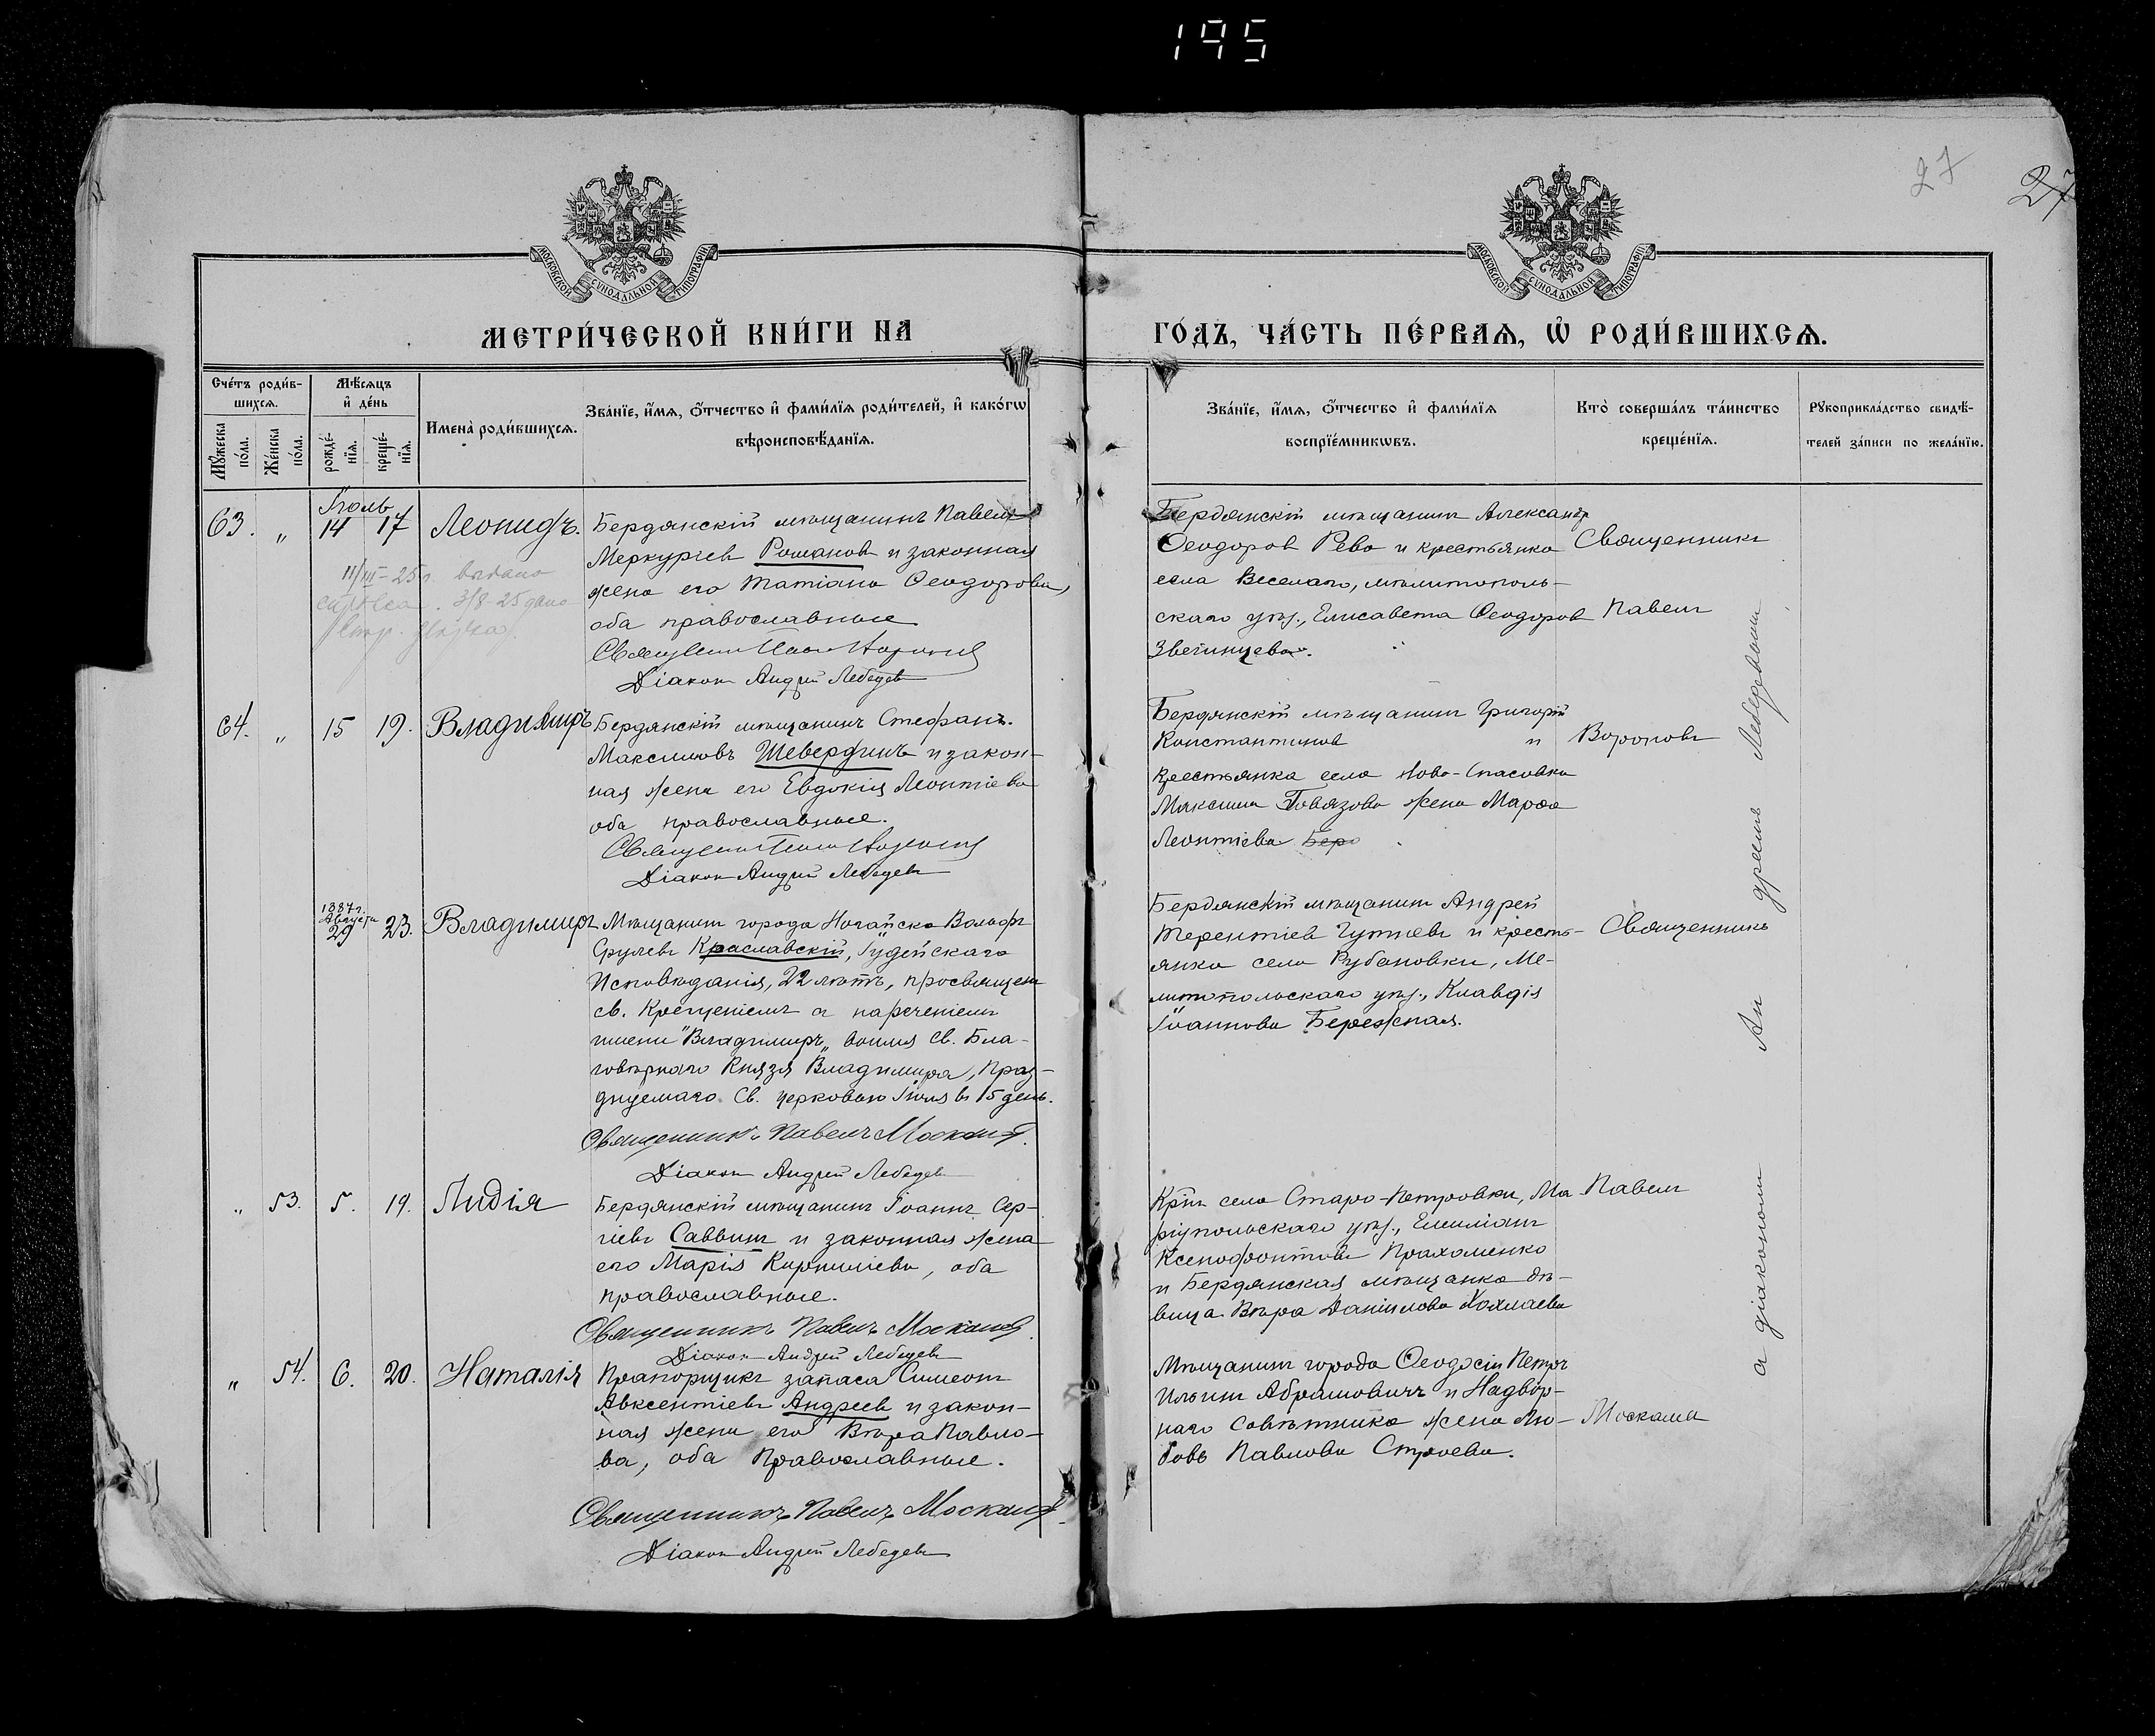 195
27
27
МОСКОВСКОЙ СѴНОДАЛЬНОЙ ТИПОГРАФІИ
МОСКОВСКОЙ СѴНОДАЛЬНОЙ ТИПОГРАФІИ
МЕТРИ́ЧЕСКОЙ КНИ́ГИ НА
ГО́ДЪ, ЧА́СТЬ ПЕ́РВАѦ, Ѡ҆ РОДИ́ВШИХСѦ.
Сче́тъ роди́в-
шихсѧ.
Мꙋ́жеска по́ла.
Же́нска по́ла.
Мѣ́сѧцъ
и҆ де́нь
рожде́-нїѧ.
креще́-нїѧ.
Имена̀ роди́вшихсѧ.
Зва́нїе, и҆́мѧ, ѻ҆́тчество и҆ фами́лїѧ роди́телей, и҆ како́гѡ
вѣроисповѣ́данїѧ.
Зва́нїе, и҆́мѧ, ѻ҆́тчество и҆ фами́лїѧ
воспрїе́мникѡвъ.
Кто̀ соверша́лъ та́инство
креще́нїѧ.
Рꙋкоприкла́дство свидѣ́-
телей за́писи по жела́нїю.
Іюль
63. „ 14 17 Леонидъ.
Бердянскій мѣщанинъ Павелъ
Меркуріевъ Романовъ и законная
жена его Татіана Ѳеодорова,
оба православные
Діаконъ Андрей Лебедевъ
11/III-25 г. выдано
3/8-25 дано
Бердянскій мѣщанинъ Александръ
Ѳеодоровъ Рева и крестьянка
села Веселаго, мелитополь-
скаго уѣз., Елисавета Ѳеодоров
Звегинцева.
Священникъ
Павелъ
64. „ 15 19. Владиміръ
Бердянскій мѣщанинъ Стефанъ
Максимовъ Шевердинъ и закон-
ная жена его Евдокія Леонтіева
оба православные.
Діаконъ Андрей Лебедевъ
Бердянскій мѣщанинъ Григорій
Константиновъ и
крестьянка села Ново-Спасовки
Максима Говязова жена Марѳа
Леонтіева Бер
1887 г.
Августа
29 23. Владимиръ
Мѣщанинъ города Ногайска Вольфъ
Срулевъ Краславскій, Іудейскаго
Исповѣданія, 22 лѣтъ, просвящен
св. Крещеніемъ съ нареченіемъ
имени "Владимиръ„ во имя Св. Бла-
говѣрнаго Князя Владимира, Праз-
днуемаго Св. церковью Іюля въ 15 день.
Священникъ Павелъ Москаль
Діаконъ Андрей Лебедевъ
Бердянскій мѣщанинъ Андрей
Терентіевъ и кресть-
янка села Рубановки, Ме-
литопольскаго уѣз., Клавдія
Іоаннова Бережная.
Священникъ
„ 53. 5. 19. Лидія
Бердянскій мѣщанинъ Іоаннъ Сер-
гіевъ Саввинъ и законная жена
его Марія Корниліева, оба
православные.
Священникъ Павелъ Москаль
Діаконъ Андрей Лебедевъ
Кр҃нъ села Старо-Петровки, Ма-
ріупольскаго уѣз., Емиліанъ
Ксенофонтовъ Прахоменко
и Бердянская мѣщанка дѣ-
вица Вѣра Даніилова Хохлаева
Павелъ
„ 54. 6. 20. Наталія
Прапорщикъ запаса Симеонъ
Авксентіевъ Андреевъ и закон-
ная жена его Вѣра Павло-
ва, оба Православные.
Священникъ Павелъ Москаль
Діаконъ Андрей Лебедевъ
Мѣщанинъ города Ѳеодосіи Петръ
Ильинъ Абрамовичъ и Надвор-
наго Совѣтника жена Лю-
бовь Павлова Строева.
Москаль
а діакономъ Андреемъ Лебедевымъ